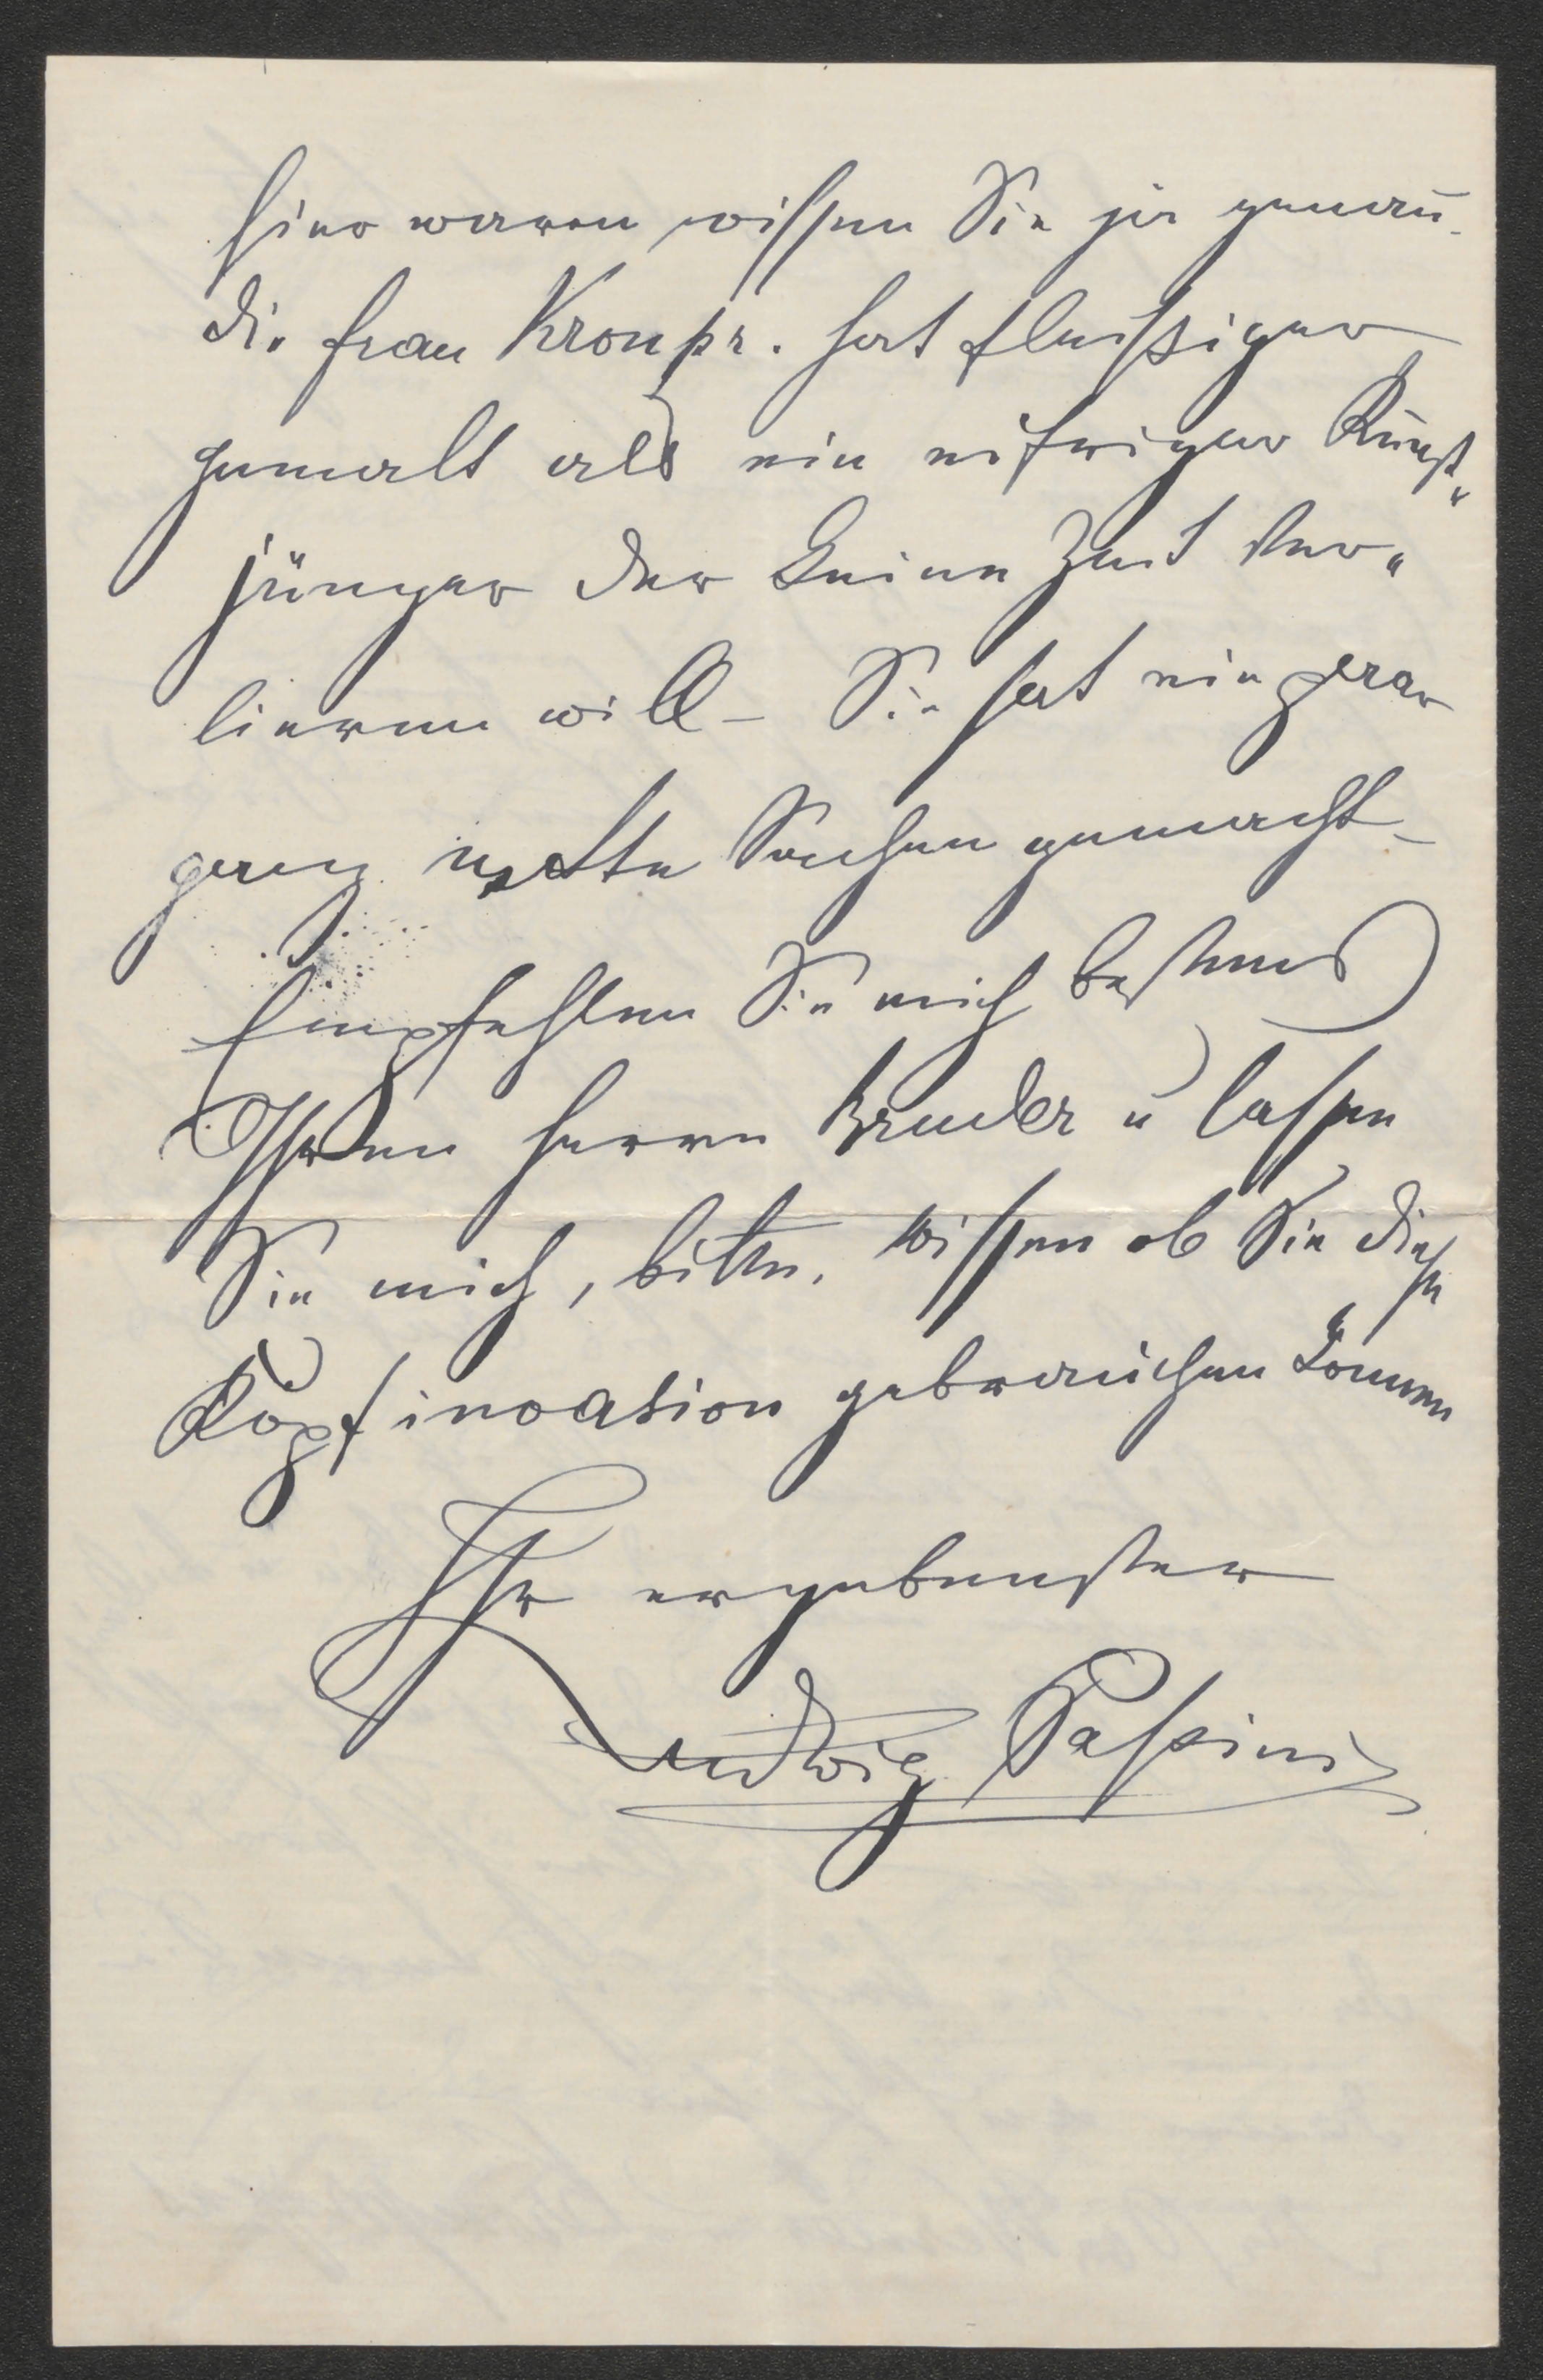 hier waren wissen Sie ja genau.
Die Frau Kronpr. hat fleißiger
gemalt als ein eifriger Kunst„
jünger der keine Zeit ver„
lieren will – Sie hat ein paar
ganz nette Sachen gemacht –
Empfehlen Sie mich bestens
Ihrem Herrn Bruder u lassen
Sie mich, bitte, wissen ob Sie diese
Kopfinvasion gebrauchen können
Ihr ergebenster
Ludwig Passini